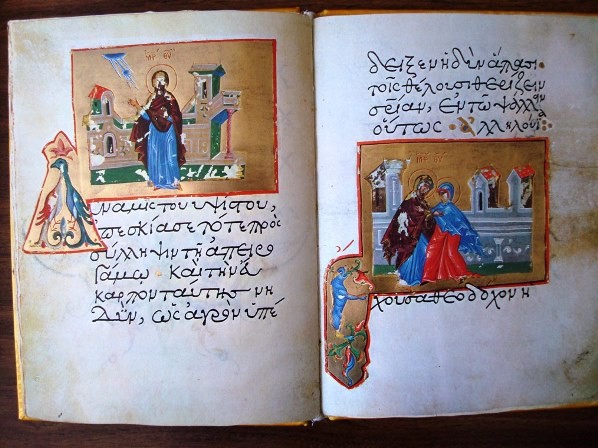 ΜΡ ΘΥ
Δύναμις τοῦ ὑψίστου,
ἐπεσκίασε τότε πρὸς
σύλληψιν τῇ ἀπειρο
γάμω· καὶ τὴν εὔ
καρπον ταύτης νη
δὺν, ὡς ἀγρὸν ὑπέ
δειξεν ἡδὺν ἅπασι
τοῖς θέλουσι θερίζειν
σρίαν, ἐν τῷ ψάλλειν
οὕτως ἀλληλούϊα
ΜΡ ΘΥ
Ἔχουσα θεοδόχον ἡ